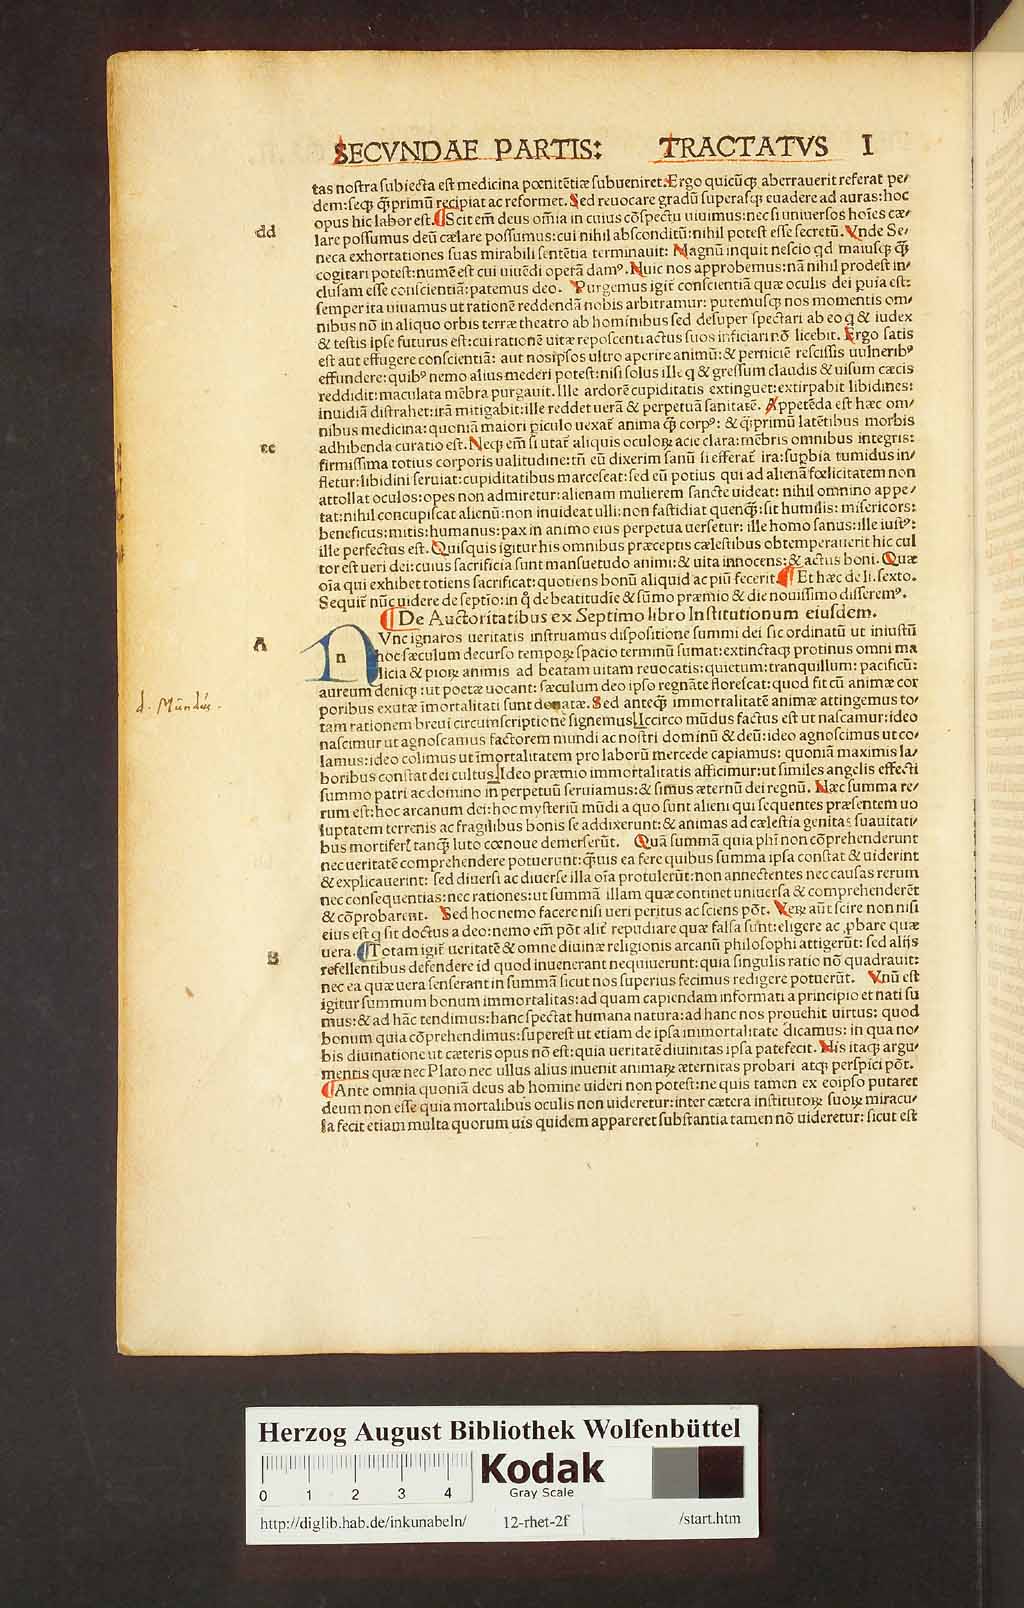 SECVNDAE PARTIS: TRACTATVS I
tas nostra subiecta est medicina pœnitētiæ subueniret. Ergo quicūqꝫ aberrauerit referat pe/
dem: seqꝫ q̃primū recipiat ac reformet. Sed reuocare gradū superasqꝫ euadere ad auras: hoc
opus hic labor est. ¶ Scit em̄ deus om̄ia in cuius cōspectu uiuimus: nec si uniuersos hoīes cæ/
dd
lare possumus deū cælare possumus: cui nihil absconditū: nihil potest esse secretū. Vnde Se/
neca exhortationes suas mirabili sentētia terminauit: Magnū inquit nescio qd maiusqꝫ q̃
cogitari potest: numē est cui uiuēdi operā damꝰ. Huic nos approbemus: nā nihil prodest in/
clusam esse conscientiā: patemus deo. Purgemus igit̃ conscientiā quæ oculis dei puia est:
semper ita uiuamus ut rationē reddendā nobis arbitramur: putemusqꝫ nos momentis om/
nibus nō in aliquo orbis terræ theatro ab hominibus sed desuper spectari ab eo q & iudex
& testis ipse futurus est: cui rationē uitæ reposcenti actus suos inficiari nō licebit. Ergo satis
est aut effugere conscientiā: aut nosipsos ultro aperire animū: & perniciē rescissis uulneribꝰ
effundere: quibꝰ nemo alius mederi potest: nisi solus ille q & gressum claudis & uisum cæcis
reddidit: maculata mēbra purgauit. Ille ardorē cupiditatis extinguet: extirpabit libidines:
inuidiā distrahet: irā mitigabit: ille reddet uerā & perpetuā sanitatē. Appetēda est hæc om/
nibus medicina: quoniā maiori piculo uexat̃ anima q̃ corpꝰ: & q̃primū latētibus morbis
ee
adhibenda curatio est. Neqꝫ em̄ si utat̃ aliquis oculoꝝ acie clara: mēbris omnibus integris:
firmissima totius corporis ualitudine: tn̄ eū dixerim sanū si efferat̃ ira: supbia tumidus in/
fletur: libidini seruiat: cupiditatibus marcescat: sed eū potius qui ad alienā fœlicitatem non
attollat oculos: opes non admiretur: alienam mulierem sancte uideat: nihil omnino appe/
tat: nihil concupiscat alienū: non inuideat ulli: non fastidiat quenq̃: sit humilis: misericors:
beneficus: mitis: humanus: pax in animo eius perpetua uersetur: ille homo sanus: ille iustꝰ:
ille perfectus est. Quisquis igitur his omnibus præceptis cælestibus obtemperauerit hic cul
tor est ueri dei: cuius sacrificia sunt mansuetudo animi: & uita innocens: & actus boni. Quæ
oīa qui exhibet totiens sacrificat: quotiens bonū aliquid ac piū fecerit. ¶ Et hæc de li. sexto.
Sequit̃ nūc uidere de septīo: in q̊ de beatitudīe & sūmo præmio & die nouissimo disseremꝰ.
¶ De Auctoritatibus ex Septimo libro Institutionum eiusdem.
A
n
Vnc ignaros ueritatis instruamus dispositione summi dei sic ordinatū ut iniustū
hoc sæculum decurso temporꝝ spacio terminū sumat: extinctaqꝫ protinus omni ma
licia & pioꝝ animis ad beatam uitam reuocatis: quietum: tranquillum: pacificū:
aureum deniqꝫ: ut poetæ uocant: sæculum deo ipso regnāte florescat: quod fit cū animæ cor
d. Mūndus.
poribus exutæ īmortalitati sunt donatæ. Sed anteqꝫ immortalitatē animæ attingemus to/
tam rationem breui circumscriptione signemus. Iccirco mūdus factus est ut nascamur: ideo
nascimur ut agnoscamus factorem mundi ac nostri dominū & deū: ideo agnoscimus ut co/
lamus: ideo colimus ut īmortalitatem pro laborū mercede capiamus: quoniā maximis la/
boribus constat dei cultus. Ideo præmio immortalitatis afficimur: ut similes angelis effecti
summo patri ac domino in perpetuū seruiamus: & simus æternū dei regnū. Hæc summa re/
rum est: hoc arcanum dei: hoc mysteriū mūdi a quo sunt alieni qui sequentes præsentem uo
luptatem terrenis ac fragilibus bonis se addixerunt: & animas ad cælestia genitas suauitati/
bus mortiferꝭ tanq̃ luto cœnoue demerserūt. Quā summā quia phī non cōprehenderunt
nec ueritatē comprehendere potuerunt: q̃uis ea fere quibus summa ipsa constat & uiderint
& explicauerint: sed diuersi ac diuerse illa oīa protulerūt: non annectentes nec causas rerum
nec consequentias: nec rationes: ut summā illam quæ continet uniuersa & comprehenderēt
& cōprobarent. Sed hoc nemo facere nisi ueri peritus ac sciens pōt. Veꝝ aūt scire non nisi
eius est q sit doctus a deo: nemo em̄ pōt alit̃ repudiare quæ falsa sunt: eligere ac ꝓbare quæ
B
uera. ¶ Totam igit̃ ueritatē & omne diuinæ religionis arcanū philosophi attigerūt: sed aliis
refellentibus defendere id quod inuenerant nequiuerunt: quia singulis ratio nō quadrauit:
nec ea quæ uera senserant in summā sicut nos superius fecimus redigere potuerūt. Vnū est
igitur summum bonum immortalitas: ad quam capiendam informati a principio et nati su
mus: & ad hāc tendimus: hanc spectat humana natura: ad hanc nos prouehit uirtus: quod
bonum quia cōprehendimus: superest ut etiam de ipsa immortalitate dicamus: in qua no/
bis diuinatione ut cæteris opus nō est: quia ueritatē diuinitas ipsa patefecit. His itaqꝫ argu/
mentis quæ nec Plato nec ullus alius inuenit animaꝝ æternitas probari atqꝫ perspici pōt.
¶ Ante omnia quoniā deus ab homine uideri non potest: ne quis tamen ex eoipso putaret
deum non esse quia mortalibus oculis non uideretur: inter cætera institutoꝝ suoꝝ miracu/
la fecit etiam multa quorum uis quidem appareret substantia tamen nō uideretur: sicut est
Herzog August Bibliothek Wolfenbüttel
0 1 2 3 4
Kodak
Gray Scale
http://diglib.hab.de/inkunabeln/ 12-rhet-2f /start.htm